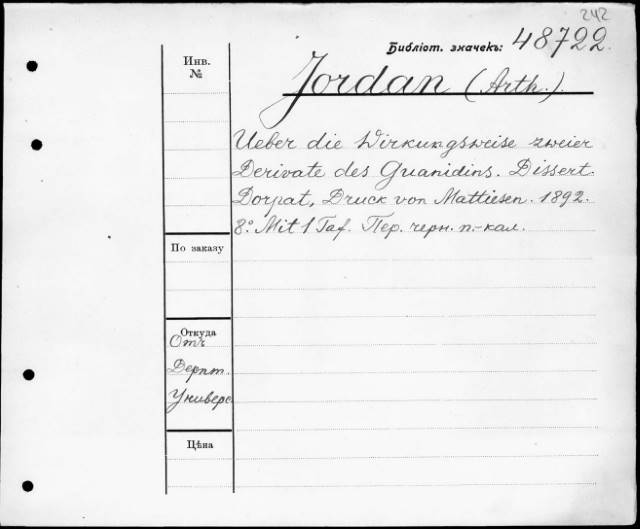 242
Библіот. значекъ: 48722.
Инв.
№
Jordan (Arth.).
Ueber die Wirkungsweise zweier
Derivate des Guanidins. Dissert.
Dorpat, Druck von Mattiesen. 1892.
8° Mit 1 Taf. Пер. черн. п.-кал.
По заказу
Откуда
Отъ
Дерпт.
Универс
Цѣна